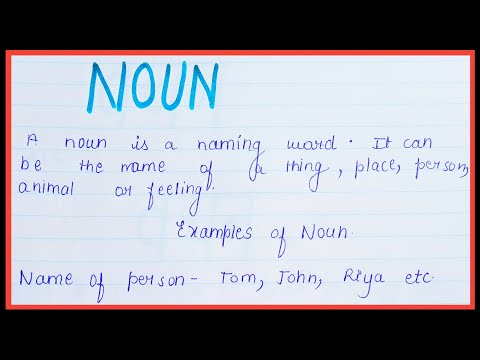 NOUN
A noun is a naming word. It can
be the name of a thing, place, person,
animal or feeling.
Examples of Noun.
Name of person- Tom, John, Riya etc.